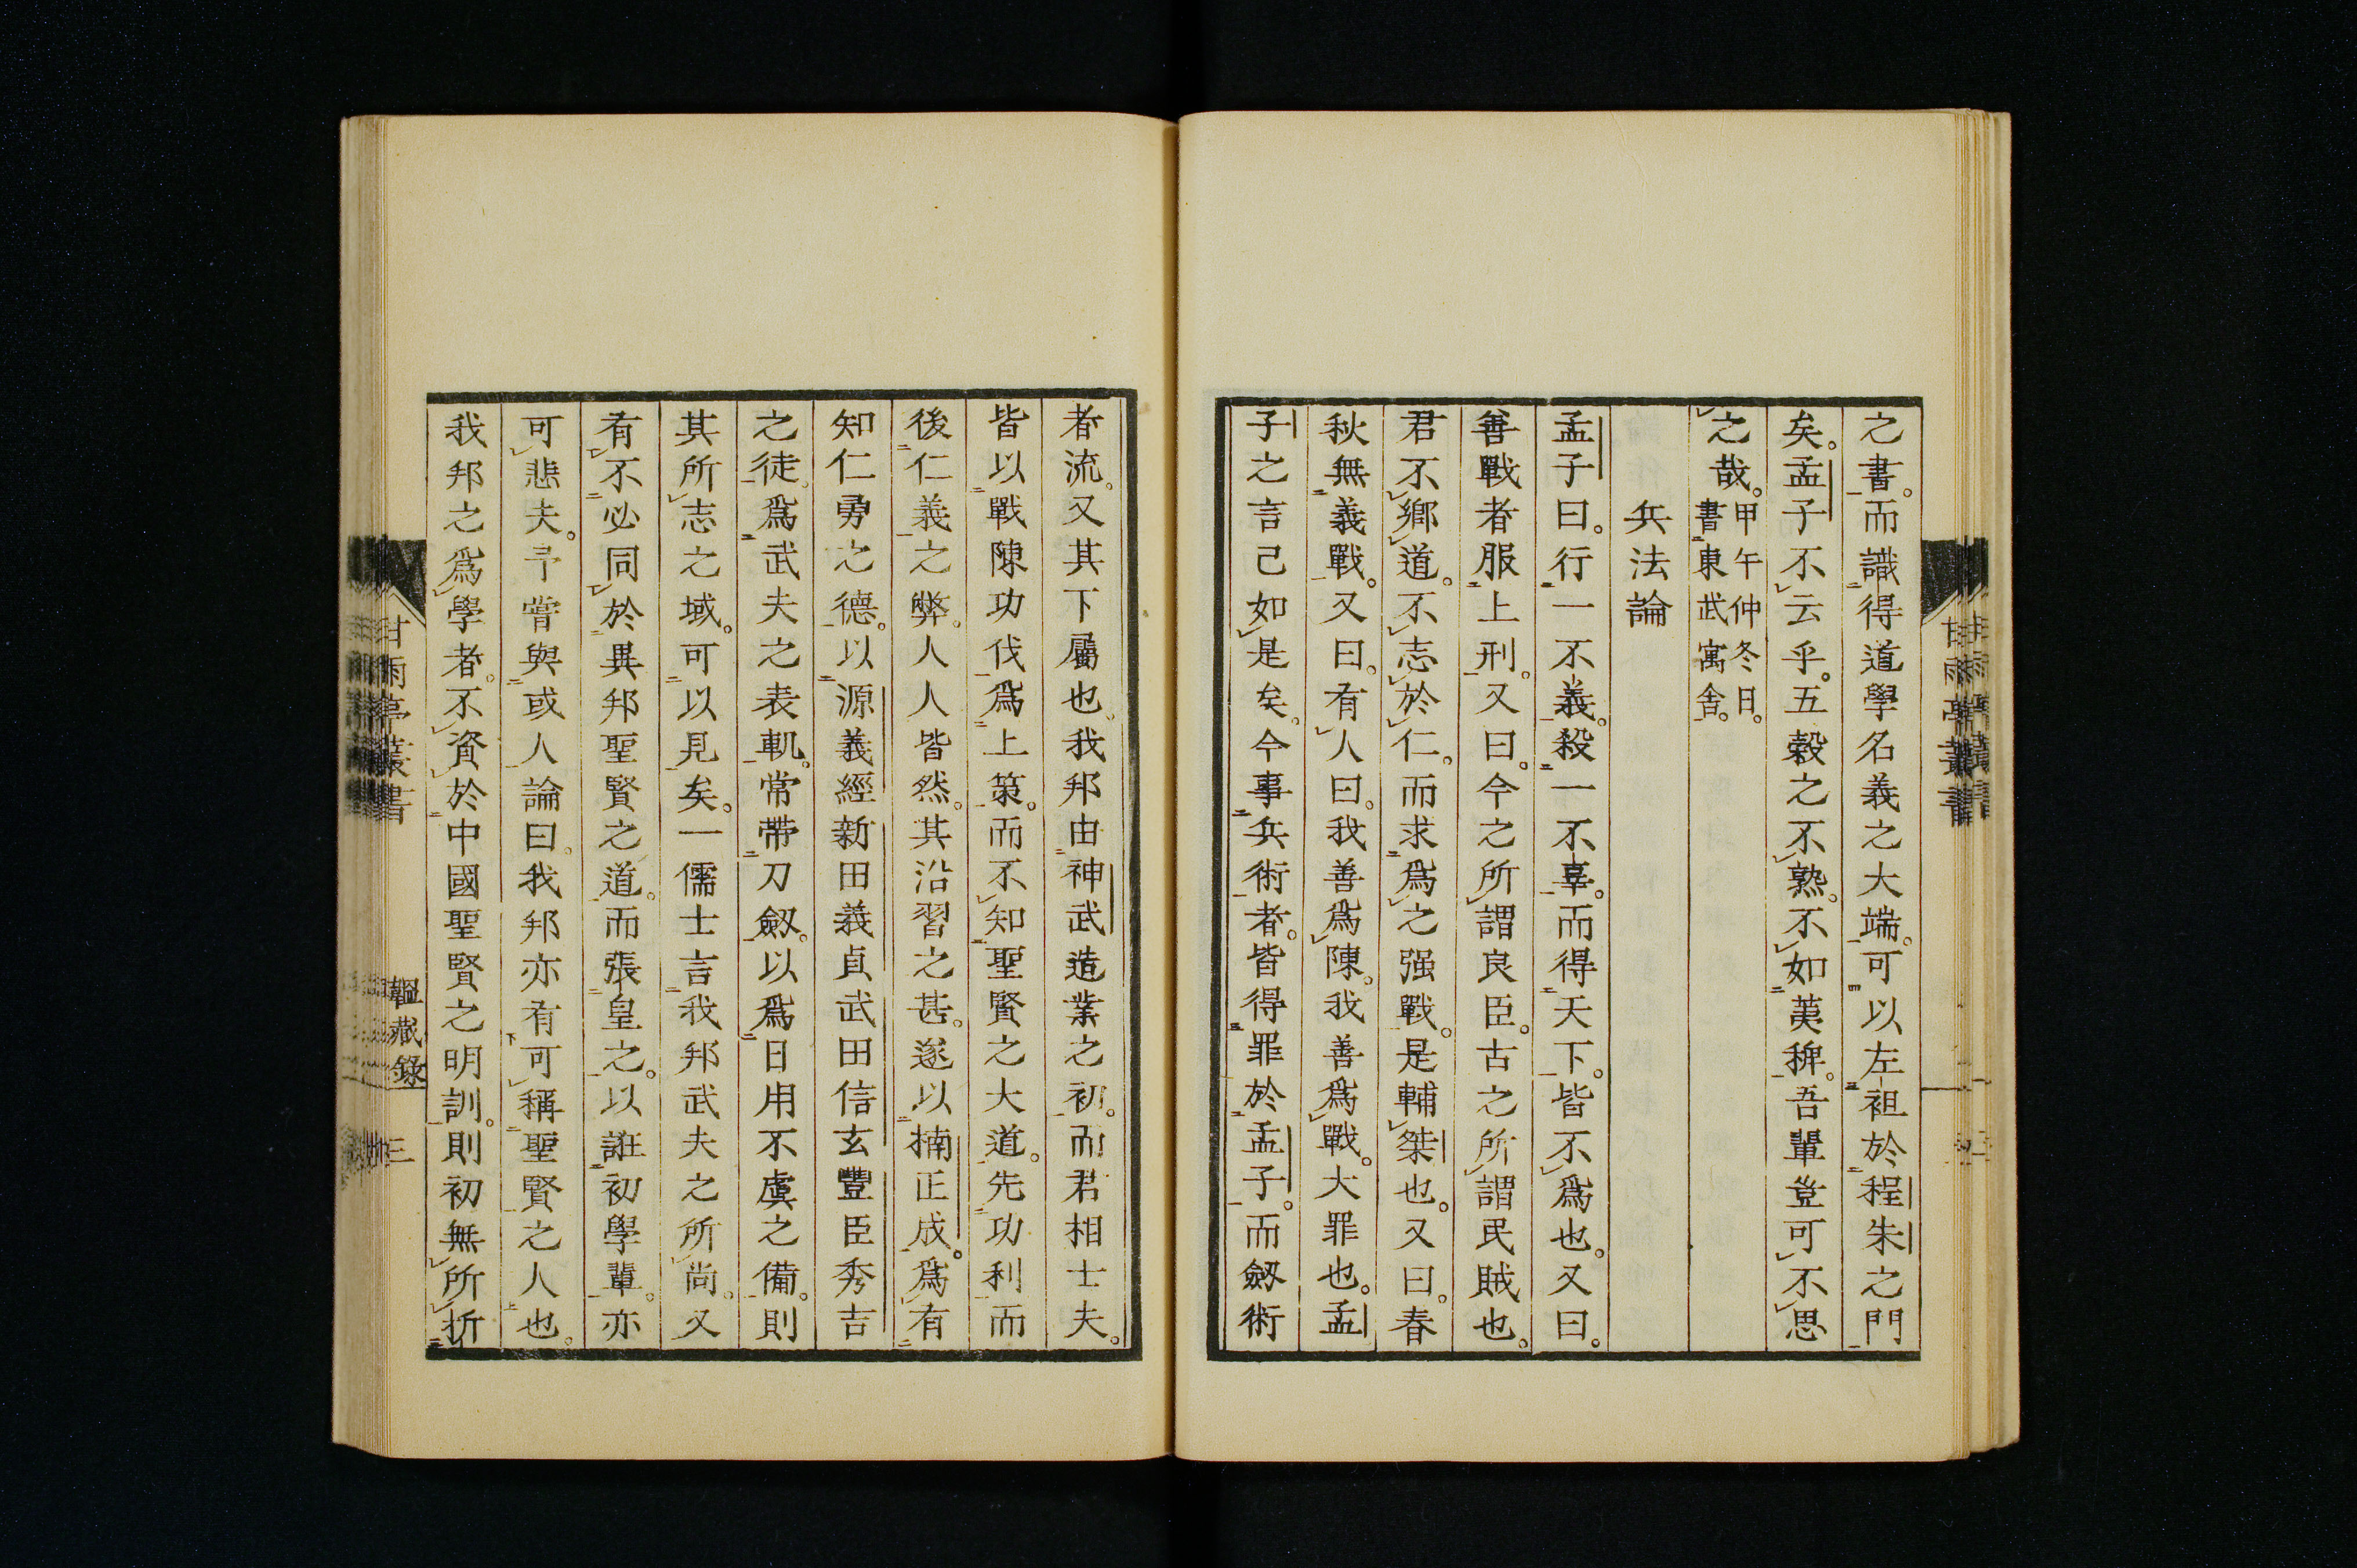 之書。而識得道學名義之大端。可以左袒於程朱之門
矣。孟子不云乎。五穀之不熟。不如荑稗。吾輩豈可不思
之哉。甲午仲冬日。書東武寓舍。
兵法論
孟子曰。行一不義。殺一不辜。而得天下。皆不爲也。又曰。
善戰者服上刑。又曰。今之所謂良臣。古之所謂民賊也。
君不鄉道。不志於仁。而求爲之强戰。是輔桀也。又曰。春
秋無義戰。又曰。有人曰。我善爲陳。我善爲戰。大罪也。孟
子之言已如是矣。今事兵術者。皆得罪於孟子。而劔術
者流。又其下屬也。我邦由神武造業之初。而君相士夫。
皆以戰陳功伐爲上策。而不知聖賢之大道。先功利而
後仁義之弊。人人皆然。其沿習之甚。遂以楠正成。爲有
知仁勇之德。以源義經新田義貞武田信玄豐臣秀吉
之徒。爲武夫之表軌。常帶刀劔。以爲日用不虞之備。則
其所志之域。可以見矣。一儒士言我邦武夫之所尚。又
有不必同於異邦聖賢之道。而張皇之。以誑初學輩。亦
可悲夫。予嘗與或人論曰。我邦亦有可稱聖賢之人也。
我邦之爲學者。不資於中國聖賢之明訓。則初無所折
甘雨亭叢書
韞藏錄
三